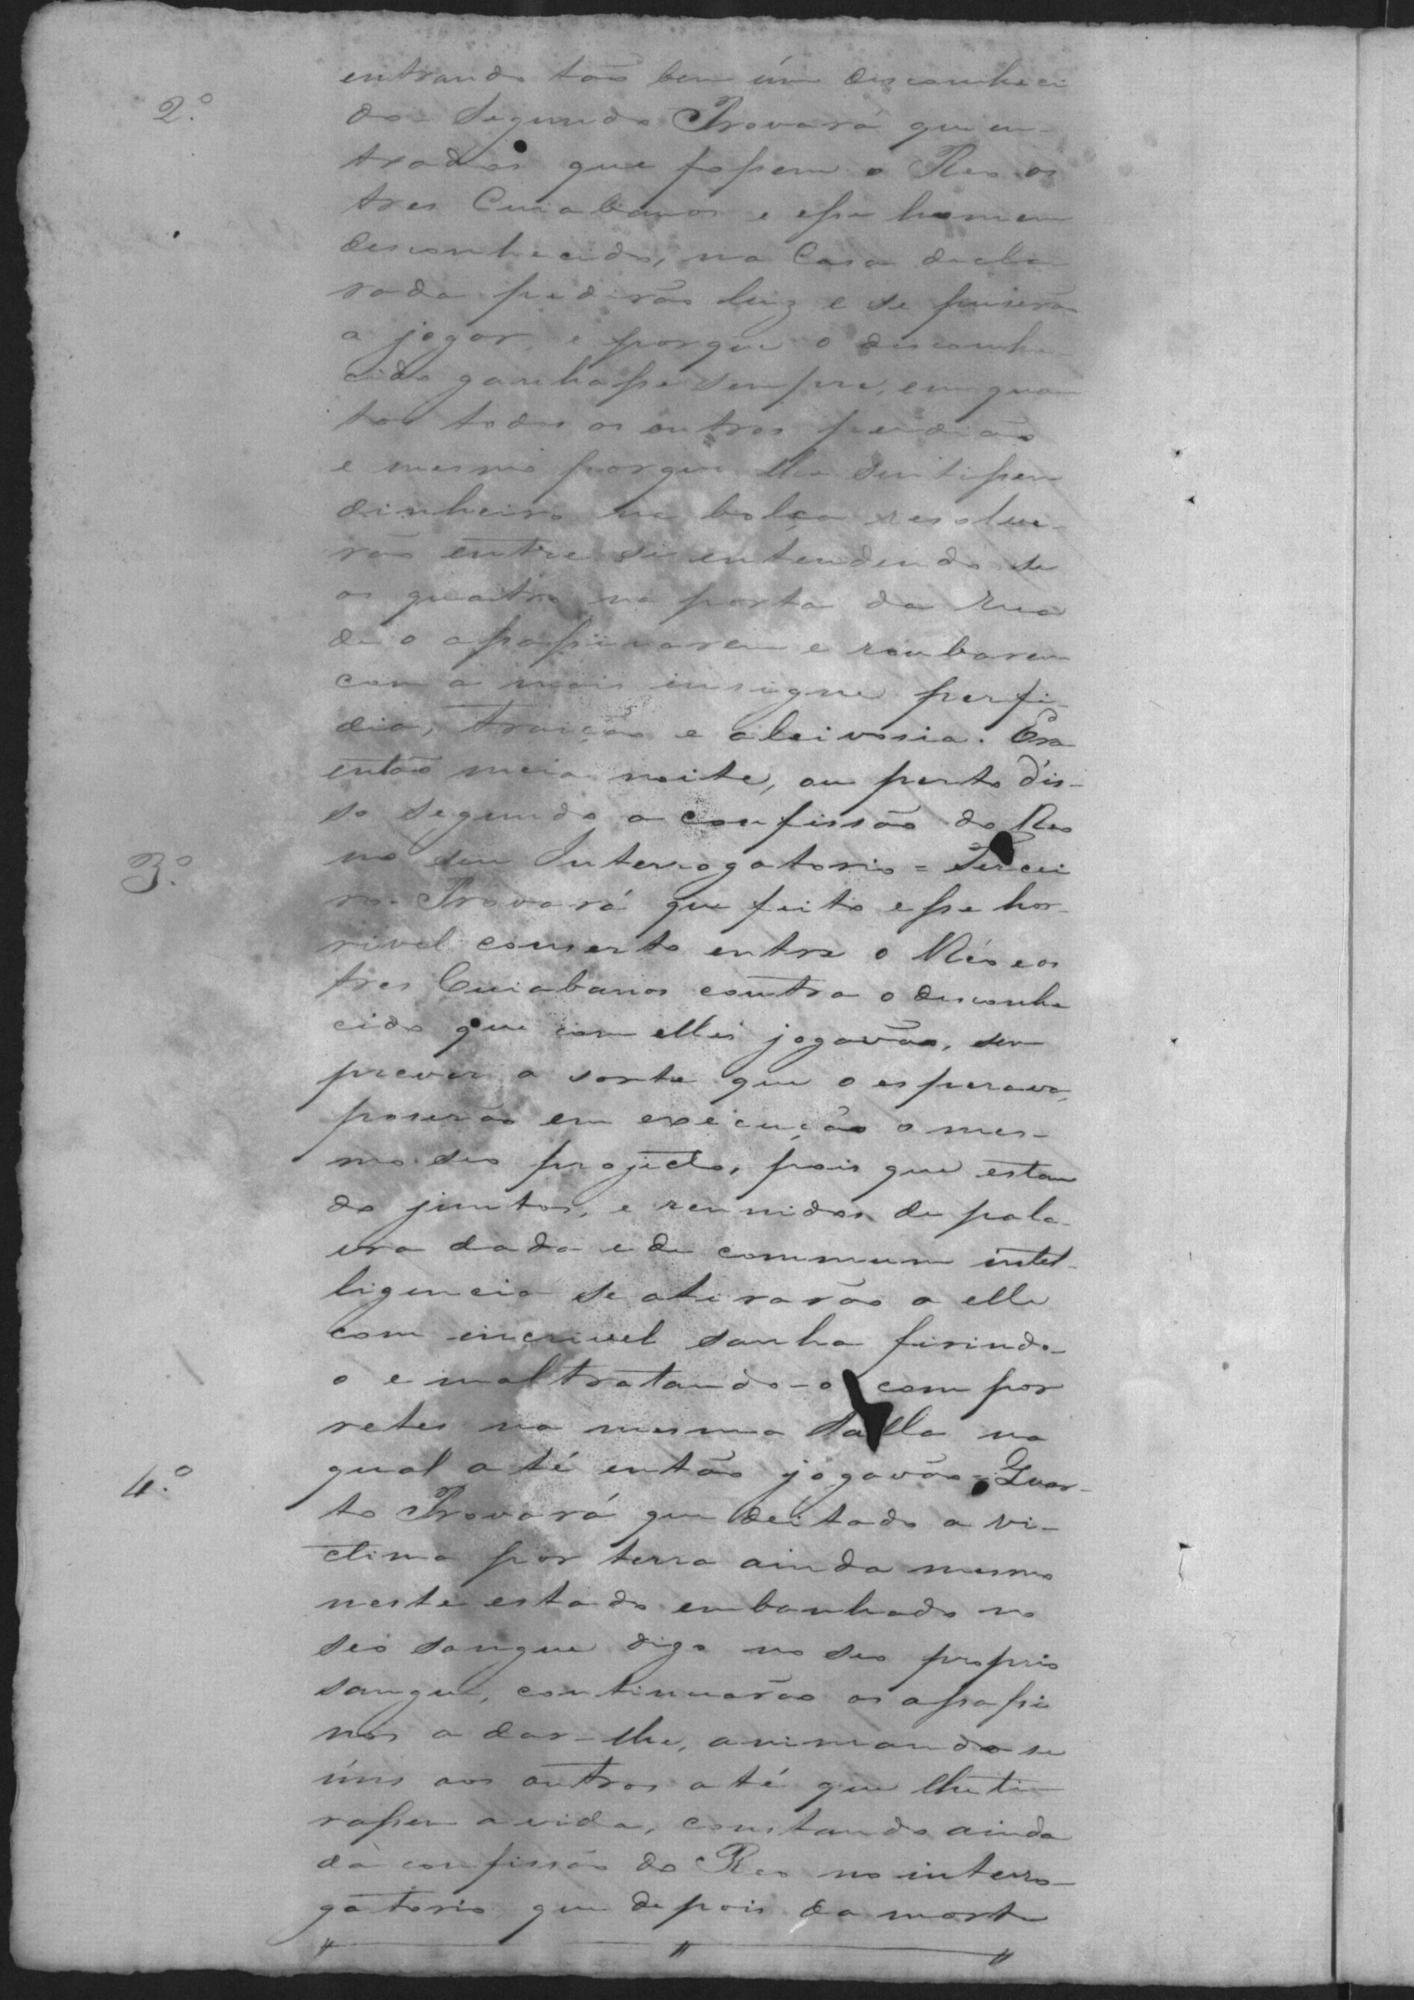 entrando tão bem úm desconheci
2.º
do - Segundo Provará que en-
trados que fossem o Reo os
tres Cuiabanos e esse homem
desconhecido, na Casa decla
rada pedirão luz e se puserão
a jogar, e porque o desconhe-
cido ganhasse sempre, em quan
to todos os outros perdião
e mesmo porque lhe sentissem
dinheiro na bolça resolve-
rão entre si entendendo se
os quatro na porta da rua
de o assassinarem e roubarem
com a mais insigne perfi-
dia, traição e aleivosia. Era
então meia noite, ou perto d'is-
so segundo a confissão do Reo
3.º
no seu Interrogatorio = Tercei
ro - Provará que feito esse hor-
rivel conserto entre o Réo e os
tres Cuiabanos contra o desconhe
cido que com elles jogavão, sem
prever a sorte que o esperava,
poserão em execução o mes-
mo seo projecto, pois que estan
do juntos, e reunidos de pala-
vra dada e de commum intel-
ligencia se atirarão a elle
com incrivel sanha firindo-
o e maltratando-o com por
retes na mesma salla na
4.º
qual até então jogavão = Quar-
to Provará que deitado a vi-
ctima por terra ainda mesmo
neste estado enbanhado no
seo sangue digo no seo proprio
sangue, continuarão os assassi
nos a dar-lhe, animando se
úns aos outros até que lhe ti-
rassem a vida, constando ainda
da confissão do Reo no interro-
gatorio que depois da morte